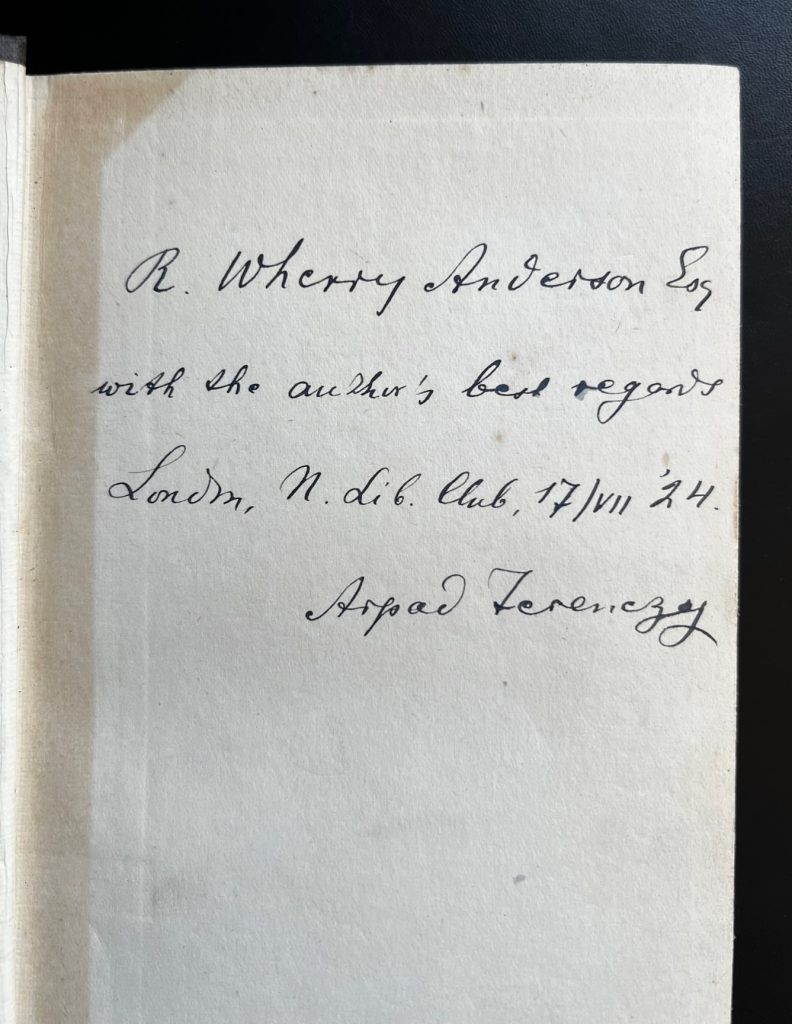 R. Wherry Anderson Esq
with the author's best regards
London, N. Lib. Club, 17/VII '24.
Arpad Ferenczy